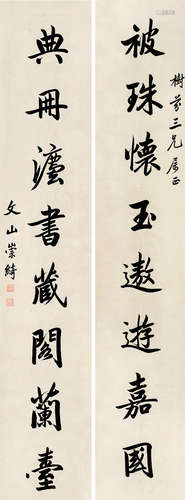 樹芬三兄属正
被珠懷玉遨遊嘉國
典冊灋書藏閣蘭臺
文山崇綺